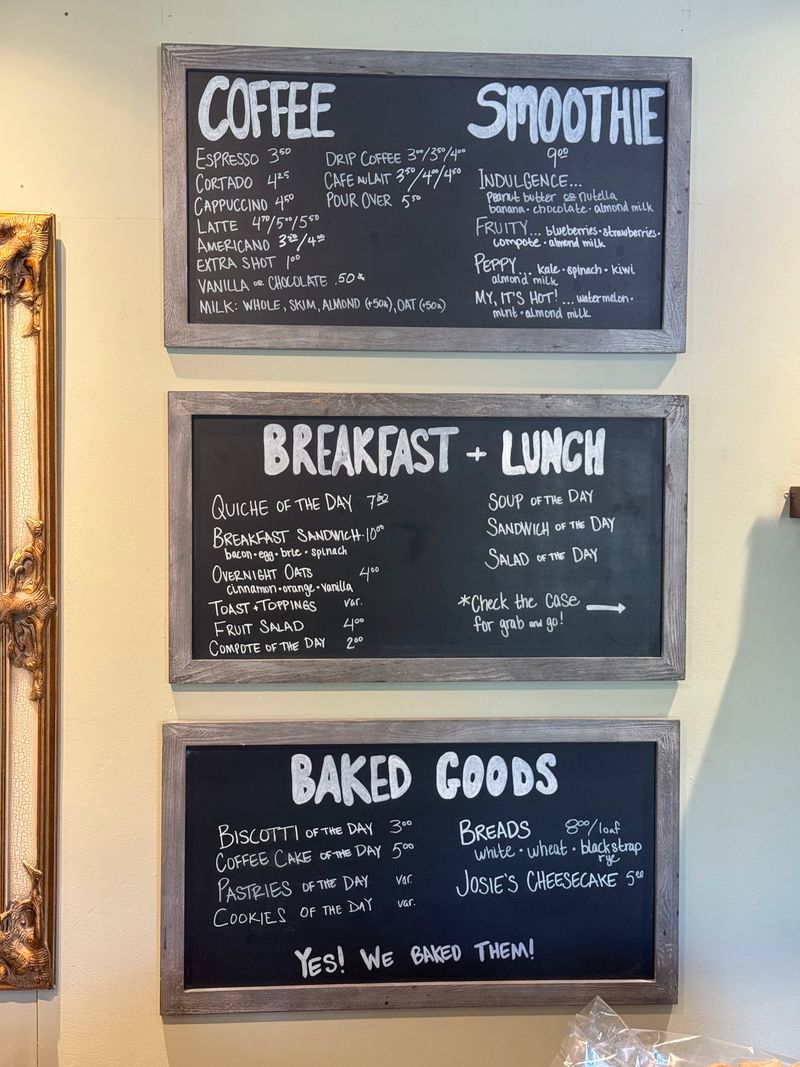 COFFEE
ESPRESSO 3⁵⁰
CORTADO 4²⁵
CAPPUCCINO 4⁵⁰
LATTE 4⁷⁰/5⁰⁰/5⁵⁰
AMERICANO 3⁵⁰/4⁰⁰
EXTRA SHOT 1⁰⁰
VANILLA OR CHOCOLATE .50¢
MILK: WHOLE, SKIM, ALMOND (+50¢), OAT (+50¢)
DRIP COFFEE 3⁰⁰/3⁵⁰/4⁰⁰
CAFE AU LAIT 3⁵⁰/4⁰⁰/4⁵⁰
POUR OVER 5⁵⁰
SMOOTHIE
9⁰⁰
INDULGENCE...
Peanut butter or nutella
banana · chocolate · almond milk
FRUITY... blueberries · strawberries ·
compote · almond milk
PEPPY... kale · spinach · kiwi
almond milk
MY, IT'S HOT! ... watermelon ·
mint · almond milk
BREAKFAST + LUNCH
QUICHE OF THE DAY 7⁵⁰
BREAKFAST SANDWICH · 10⁰⁰
bacon · egg · brie · spinach
OVERNIGHT OATS 4⁰⁰
cinnamon · orange · vanilla
TOAST + TOPPINGS var.
FRUIT SALAD 4⁰⁰
COMPOTE OF THE DAY 2⁰⁰
SOUP OF THE DAY
SANDWICH OF THE DAY
SALAD OF THE DAY
*Check the CASE →
for grab and go!
BAKED GOODS
BISCOTTI OF THE DAY 3⁰⁰
COFFEE CAKE OF THE DAY 5⁰⁰
PASTRIES OF THE DAY var.
COOKIES OF THE DAY var.
BREADS 8⁰⁰/loaf
white · wheat · blackstrap
rye
JOSIE'S CHEESECAKE 5⁰⁰
YES! WE BAKED THEM!